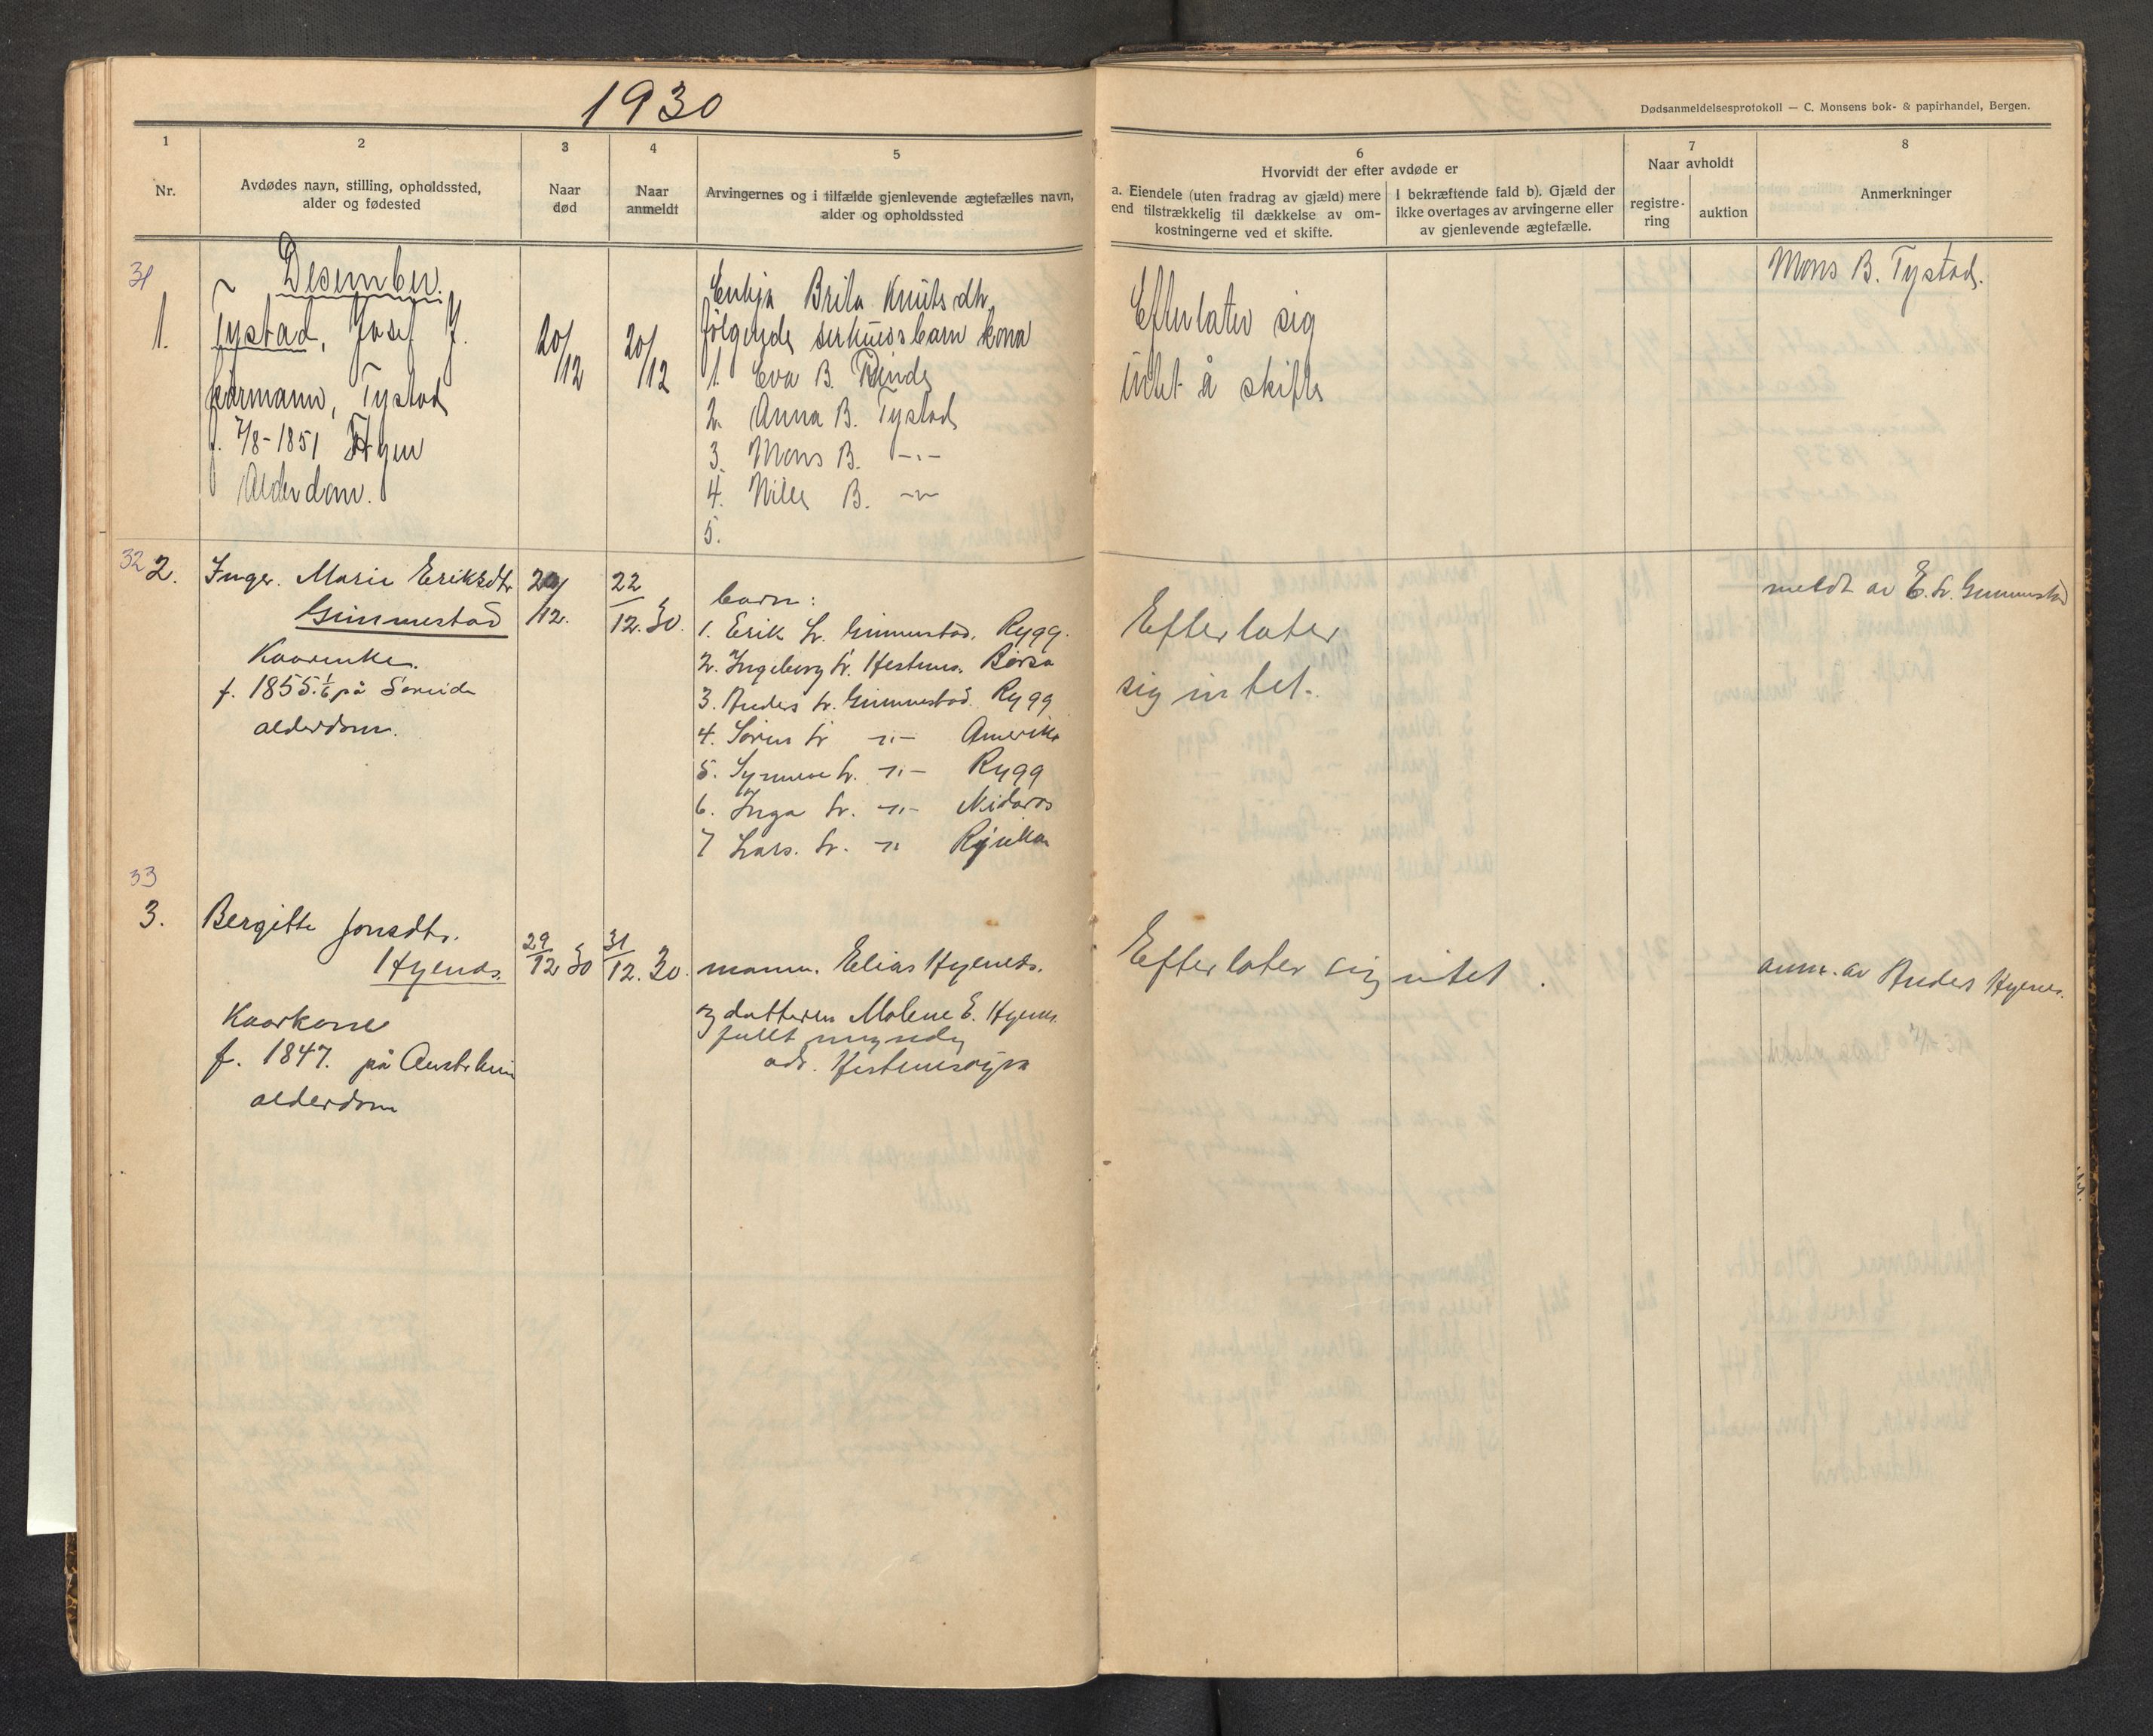 1930
Dødsanmeldelsesprotokoll — C. Monsens bok- & papirhandel, Bergen.
1
Nr.
2
Avdødes navn, stilling, opholdssted,
alder og fødested
3
Naar
død
4
Naar
anmeldt
5
Arvingernes og i tilfælde gjenlevende ægtefælles navn,
alder og opholdssted
6
Hvorvidt der efter avdøde er
a. Eiendele (uten fradrag av gjæld) mere
end tilstrækkelig til dækkelse av om-
kostningerne ved et skifte.
I bekræftende fald b). Gjæld der
ikke overtages av arvingerne eller
av gjenlevende ægtefælle.
7
Naar avholdt
registre-
ring
auktion
8
Anmerkninger
Desember.
31
1.
Tystad, Josef J.
kårmann, Tystad
f. 7/8-1851 Hyen
Alderdom.
20/12
20/12
Enkja Brita Knutsdtr,
følgende serkullsbarn
1. Eva B. Rinde
2. Anna B. Tystad
3. Mons B. -"-
4. Nills B. -"-
5.
Efterlater sig
intet å skifte
Mons B. Tystad.
32
2.
Inger. Marie Eriksdtr
Gimmestad
Kaarenke.
f. 1855. 1/6 på
alderdom.
/12.
22
12. 30.
barn:
1. Erik L. Gimmestad. Rygg.
2. Ingeborg L. Hestenes.
3. Anders L. Gimmestad. Rygg
4. Søren L. -"- Amerika
5. Synneve L. -"- Rygg
6. Inga L. -"- Nidaros
7 Lars. L. -"- Rjukan
Efterlater
sig intet.
meldt av E. L. Gimmestad
33
3.
Bergitte Jonsdtr.
Hyenes.
Kaarkone
f. 1847. på Austrheim
alderdom
29
12 30
31
12. 30.
mann. Elias Hyenes.
og datteren Malene E. Hyenes.
fullt myndig
adr. Hestenesøyra
Efterlater sig intet.
anm. av Anders Hyenes.